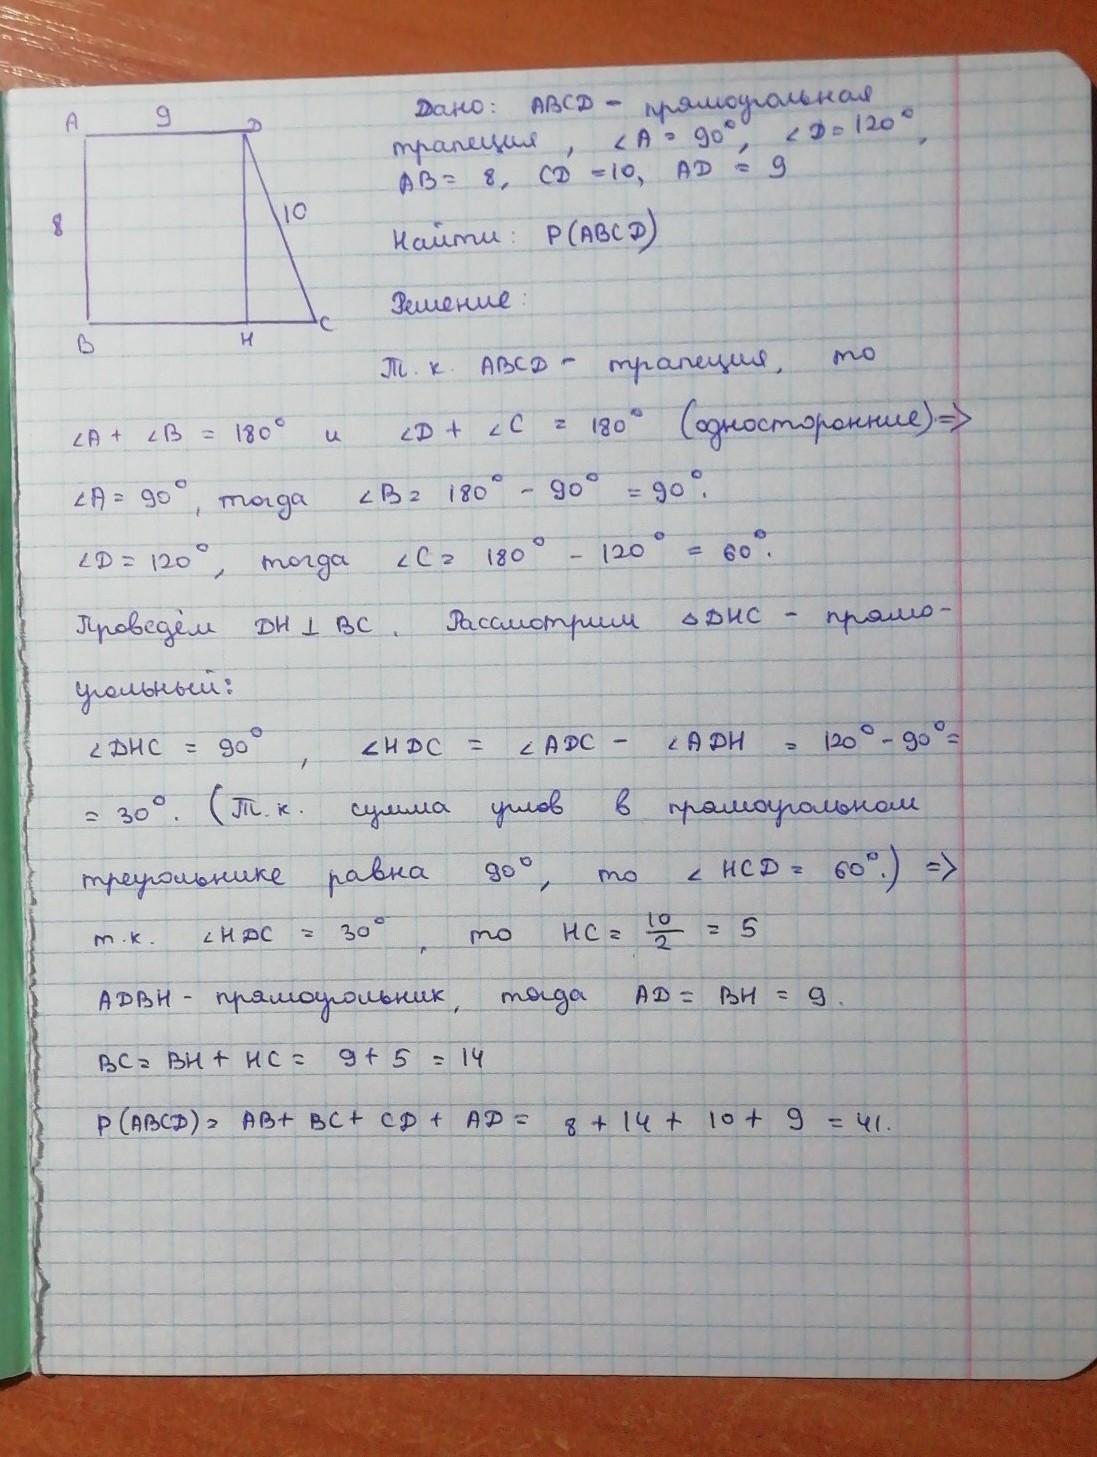 A 9 D
8
10
B H C
Дано: ABCD – прямоугольная
трапеция, ∠A = 90°, ∠D = 120°,
AB = 8, CD = 10, AD = 9
Найти: P(ABCD)
Решение:
Т. к. ABCD – трапеция, то
∠A + ∠B = 180° и ∠D + ∠C = 180° (односторонние) =>
∠A = 90°, тогда ∠B = 180° – 90° = 90°.
∠D = 120°, тогда ∠C = 180° – 120° = 60°.
Проведём DH ⊥ BC. Рассмотрим △DHC – прямо-
угольный:
∠DHC = 90°, ∠HDC = ∠ADC – ∠ADH = 120° – 90° =
= 30°. (Т. к. сумма углов в прямоугольном
треугольнике равна 90°, то ∠HCD = 60°.) =>
т.к. ∠HDC = 30°, то HC = 10/2 = 5
ADBH – прямоугольник, тогда AD = BH = 9.
BC = BH + HC = 9 + 5 = 14
P(ABCD) = AB + BC + CD + AD = 8 + 14 + 10 + 9 = 41.